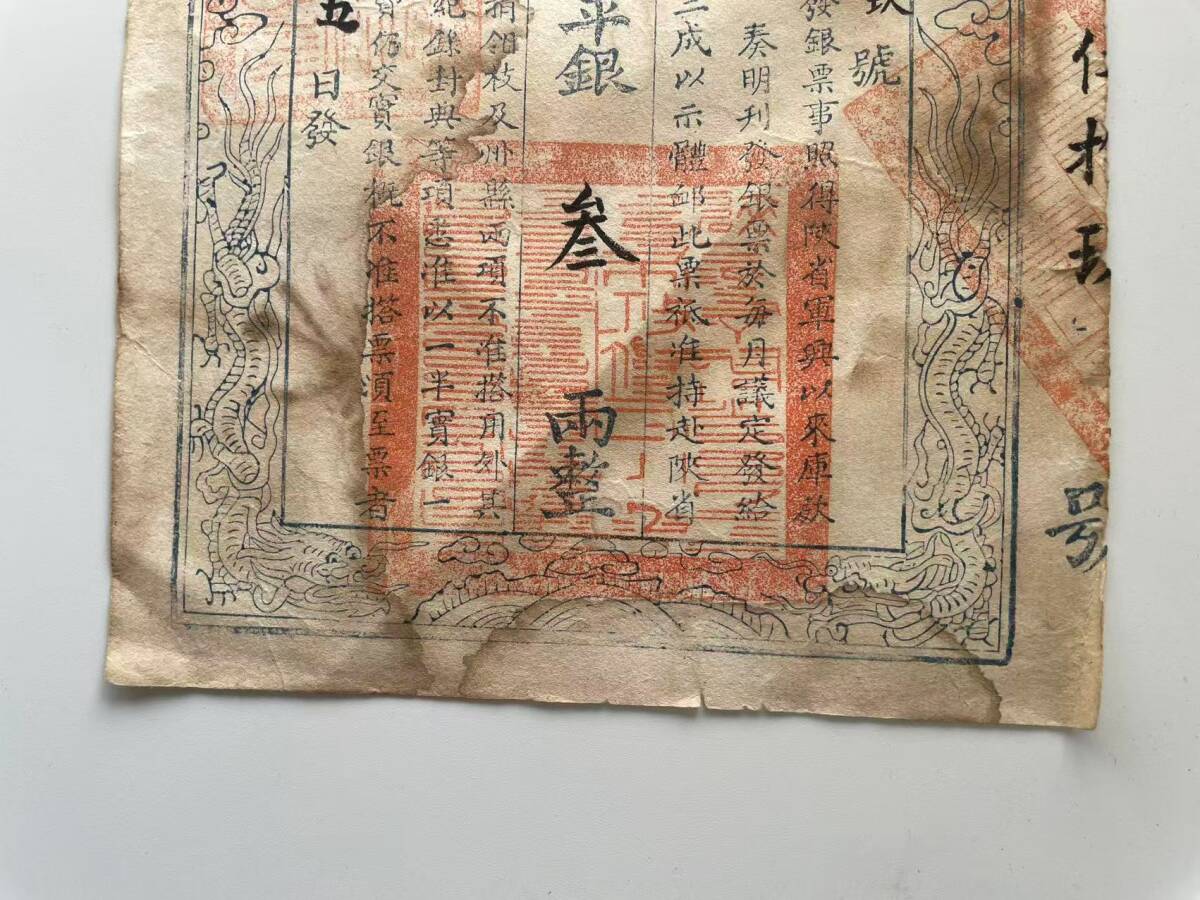 仟拾玖
号
玖號
發銀票事照得陝省軍興以來庫欵
奏明刊發銀票於每月議定發給
二成以示體䘏此票祗准持赴陝省
平銀叁兩整
捐銀枝及州縣兩項不准搭用外其
紀錄封典等項悉准以一半實銀一
仍交實銀概不准搭票須至票者
五日發